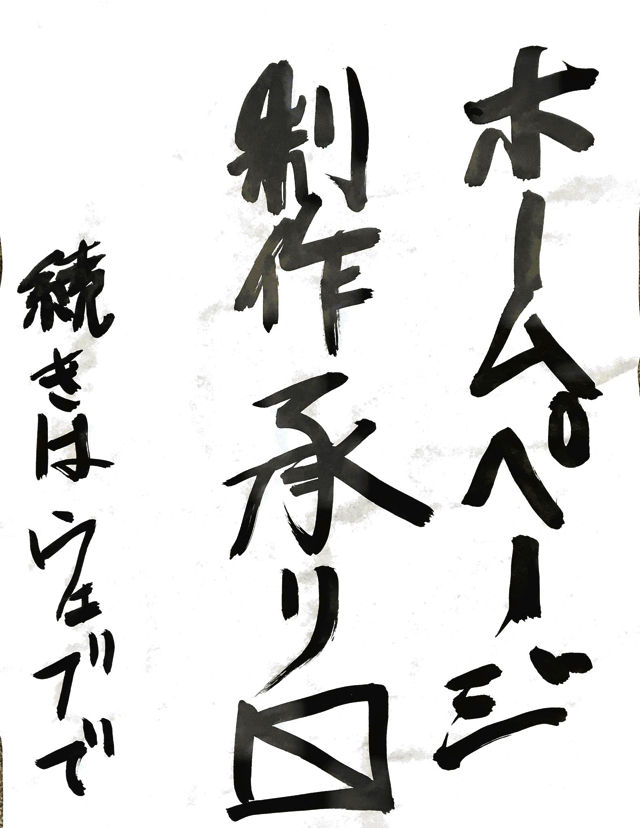 ホームページ
制作承り〼
続きはウェブで